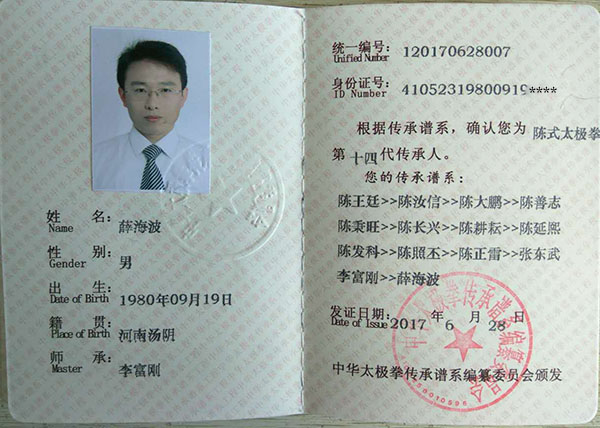 姓 名: 薛海波
Name
性 别: 男
Gender
出 生: 1980年09月19日
Date of Birth
籍 贯: 河南汤阴
Place of Birth
师 承: 李富刚
Master
统一编号: 120170628007
Unified Number
身份证号: 41052319800919****
ID Number
根据传承谱系，确认您为 陈式太极拳
第 十四 代传承人。
您的传承谱系:
陈王廷>>陈汝信>>陈大鹏>>陈善志
陈秉旺>>陈长兴>>陈耕耘>>陈延熙
陈发科>>陈照丕>>陈正雷>>张东武
李富刚>>薛海波
发证日期: 2017 年 6 月 28 日
Date of Issue
中华太极拳传承谱系编纂委员会颁发